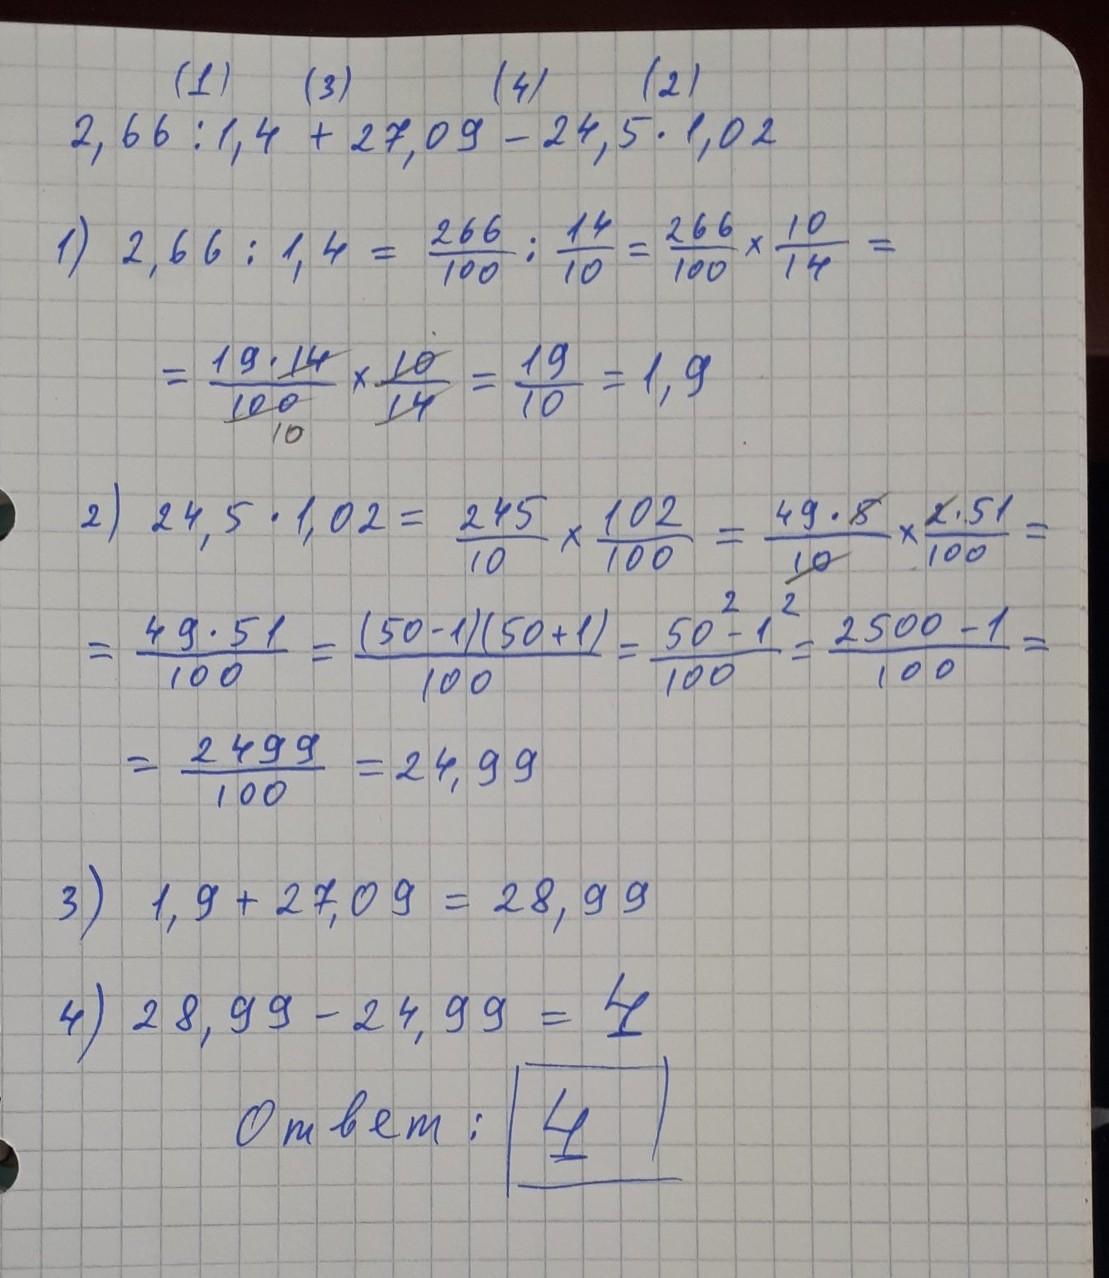 (1) (3) (4) (2)
2,66 : 1,4 + 27,09 - 24,5 · 1,02
1) 2,66 : 1,4 = 266/100 : 14/10 = 266/100 × 10/14 =
= 19·14/100 × 10/14 = 19/10 = 1,9
10
2) 24,5 · 1,02 = 245/10 × 102/100 = 49·5/10 × 2·51/100 =
= 49·51/100 = (50-1)(50+1)/100 = 50²-1²/100 = 2500-1/100 =
= 2499/100 = 24,99
3) 1,9 + 27,09 = 28,99
4) 28,99 - 24,99 = 4
Ответ: 4